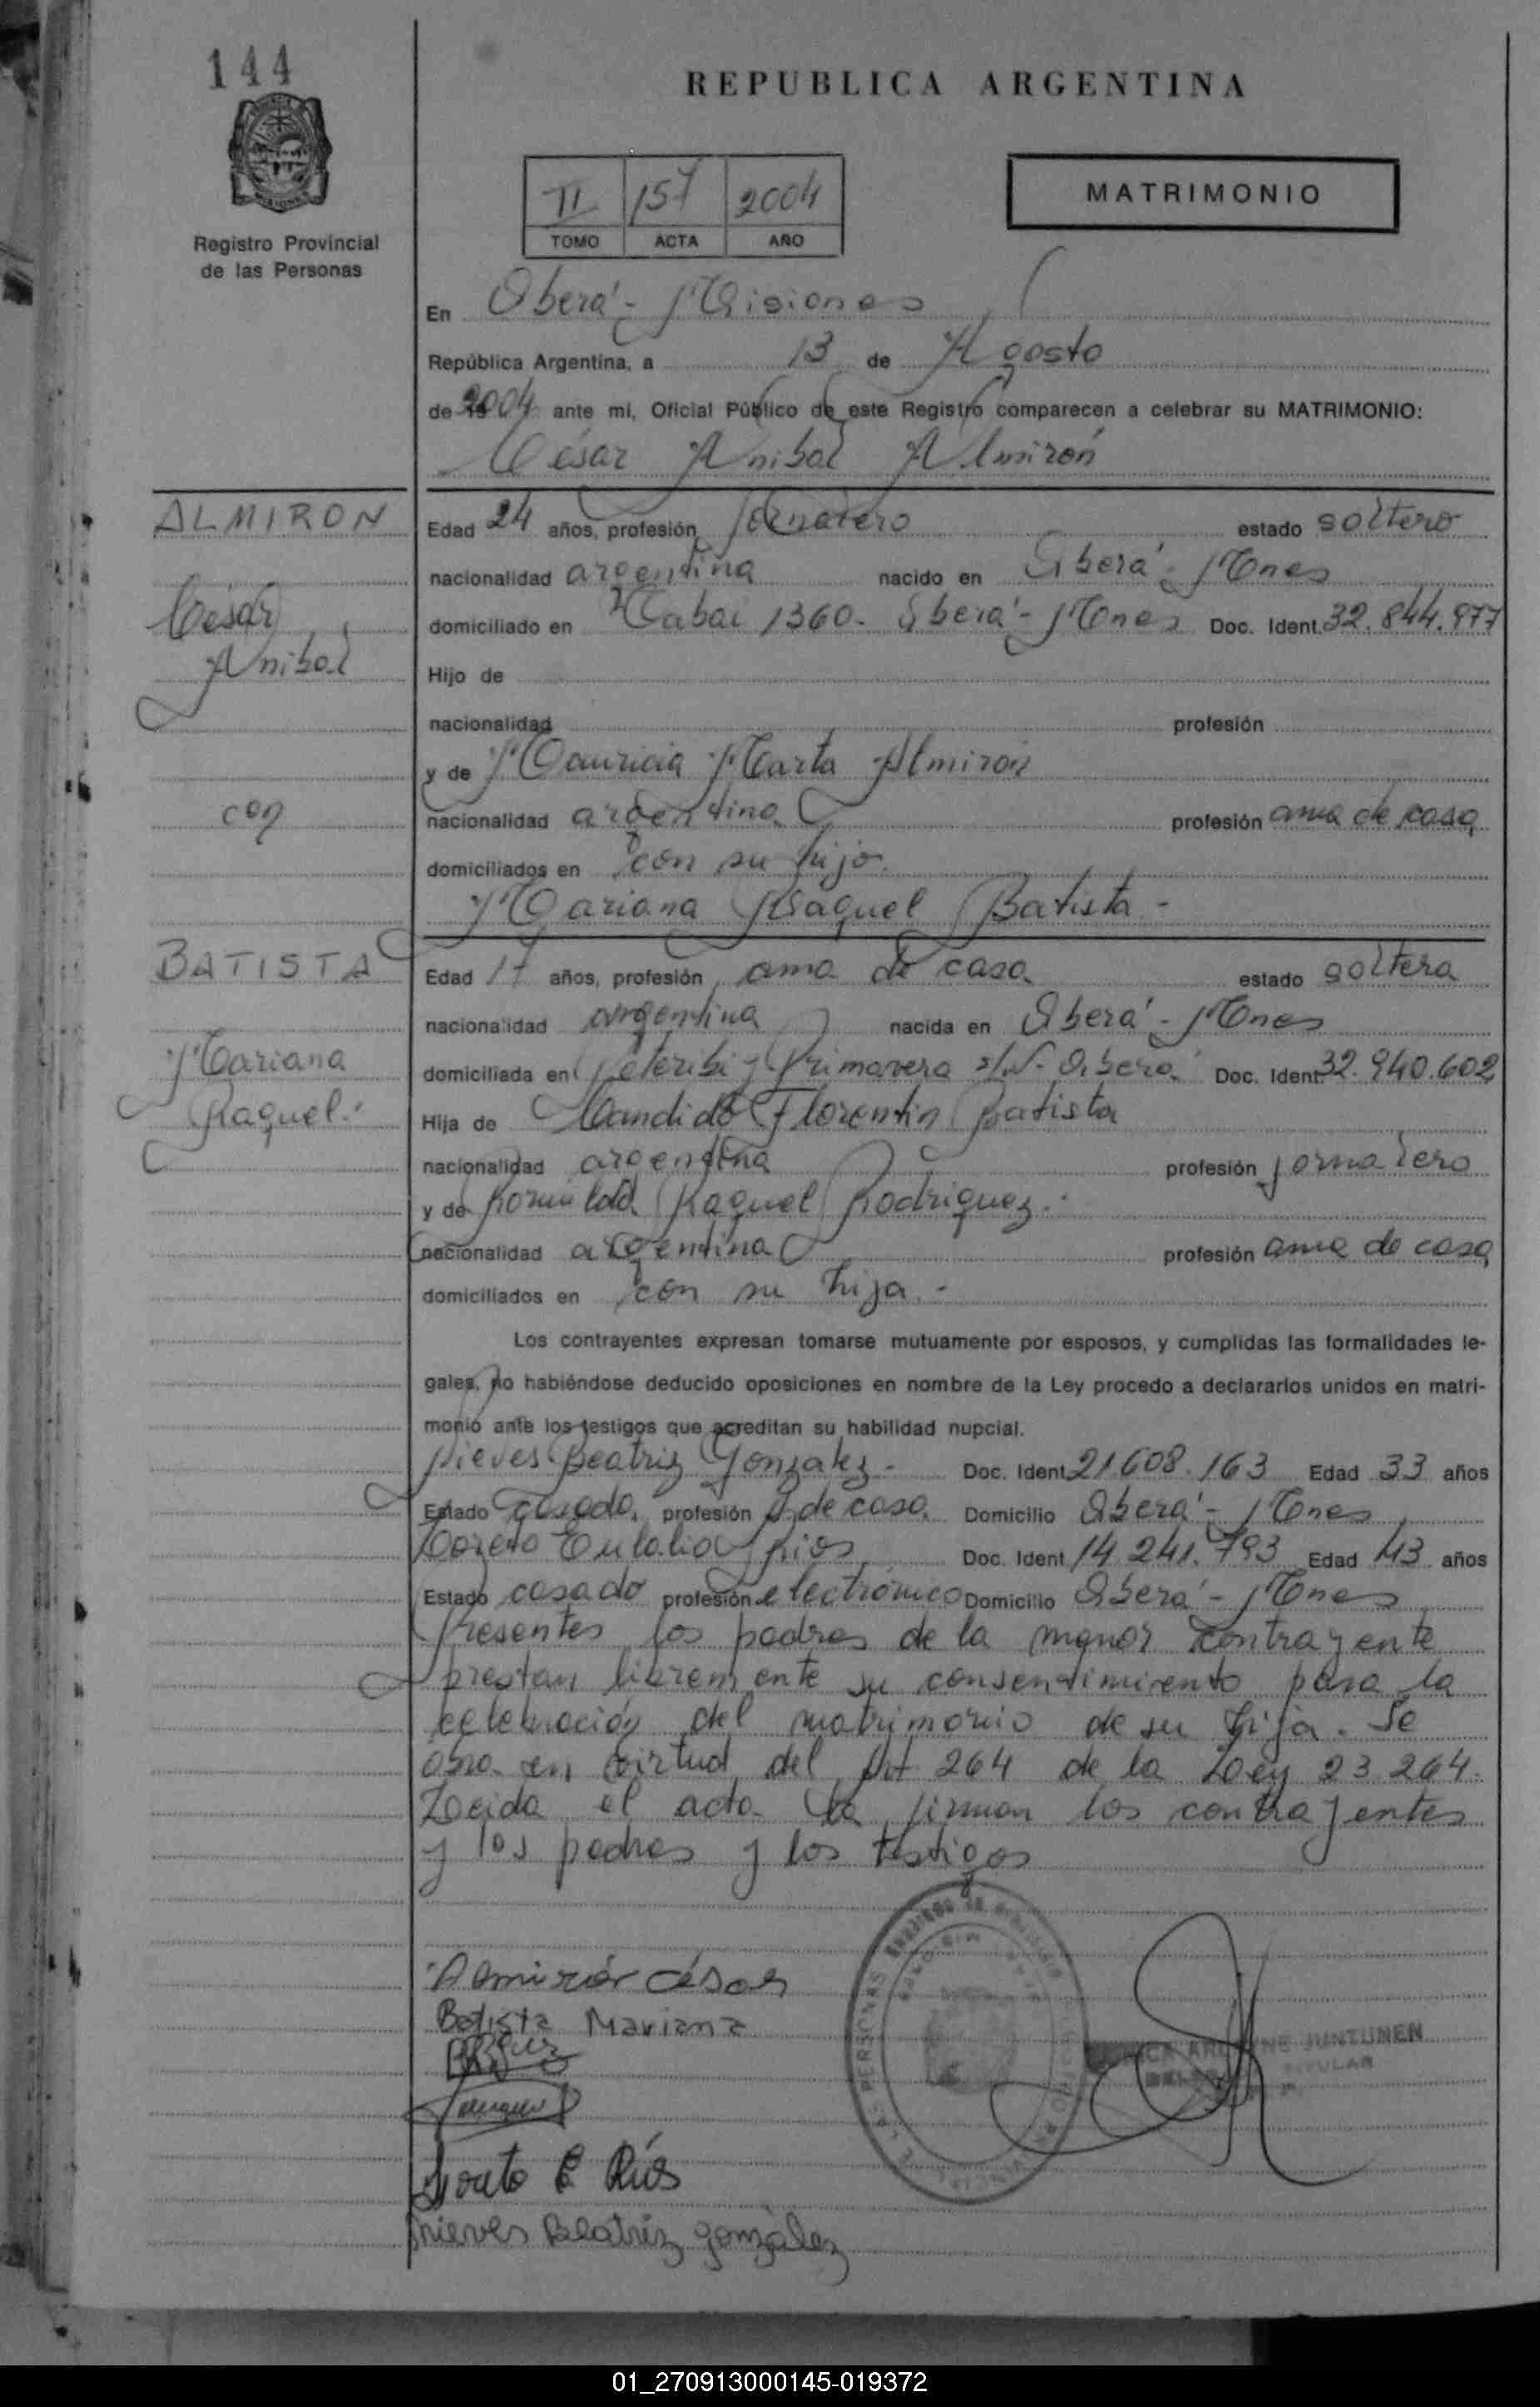 144
REPUBLICA ARGENTINA
II 157 2004
TOMO ACTA AÑO
MATRIMONIO
Registro Provincial
de las Personas
En Oberá - Misiones
República Argentina, a 13 de Agosto
de 2004 ante mí, Oficial Público de este Registro comparecen a celebrar su MATRIMONIO:
César Anibal Almirón
ALMIRON
César
Anibal
con
Edad 24 años, profesión Jornalero estado soltero
nacionalidad argentina nacido en Oberá - Mnes
domiciliado en 1360 - Oberá - Mnes Doc. Ident. 32.844.977
Hijo de
nacionalidad profesión
y de Mauricia Marta Almirón
nacionalidad argentina profesión ama de casa
domiciliados en con su hijo.
Mariana Raquel Batista -
BATISTA
Mariana
Raquel
Edad 17 años, profesión ama de casa estado soltera
nacionalidad argentina nacida en Oberá - Mnes
domiciliada en Peteribi y Primavera s/N - Oberá Doc. Ident. 32.940.602
Hija de Candido Florentin Batista
nacionalidad argentina profesión jornalero
y de Romualda Raquel Rodriguez.
nacionalidad argentina profesión ama de casa
domiciliados en con su hija -
Los contrayentes expresan tomarse mutuamente por esposos, y cumplidas las formalidades le-
gales, no habiéndose deducido oposiciones en nombre de la Ley procedo a declararlos unidos en matri-
monio ante los testigos que acreditan su habilidad nupcial.
Nieves Beatriz Gonzalez - Doc. Ident. 21.608.163 Edad 33 años
Estado casada, profesión A. de casa. Domicilio Oberá - Mnes
Loreto Eulalio Rios Doc. Ident. 14.241.793 Edad 43 años
Estado casado profesión electrónico Domicilio Oberá - Mnes
Presentes los padres de la menor contrayente
prestan libremente su consentimiento para la
celebración del matrimonio de su hija. Se
en virtud del Art 264 de la Ley 23.264.
Leida el acta la firman los contrayentes
y los padres y los testigos
Almirón César
Batista Mariana
Loreto E Ríos
Nieves Beatriz González
JUNTUNEN
TITULAR
01_270913000145-019372